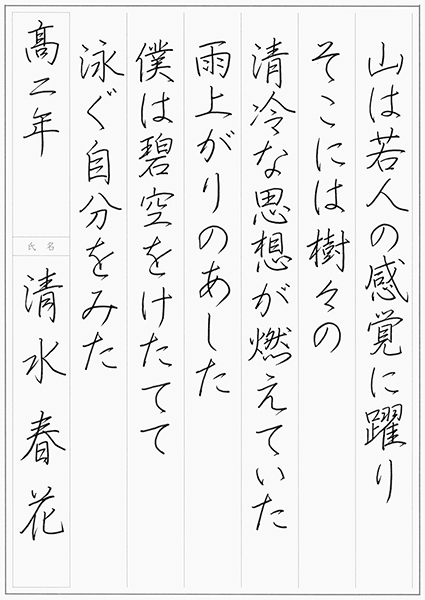 山は若人の感覚に躍り
そこには樹々の
清冷な思想が燃えていた
雨上がりのあした
僕は碧空をけたてて
泳ぐ自分をみた
高二年
氏名
清水春花